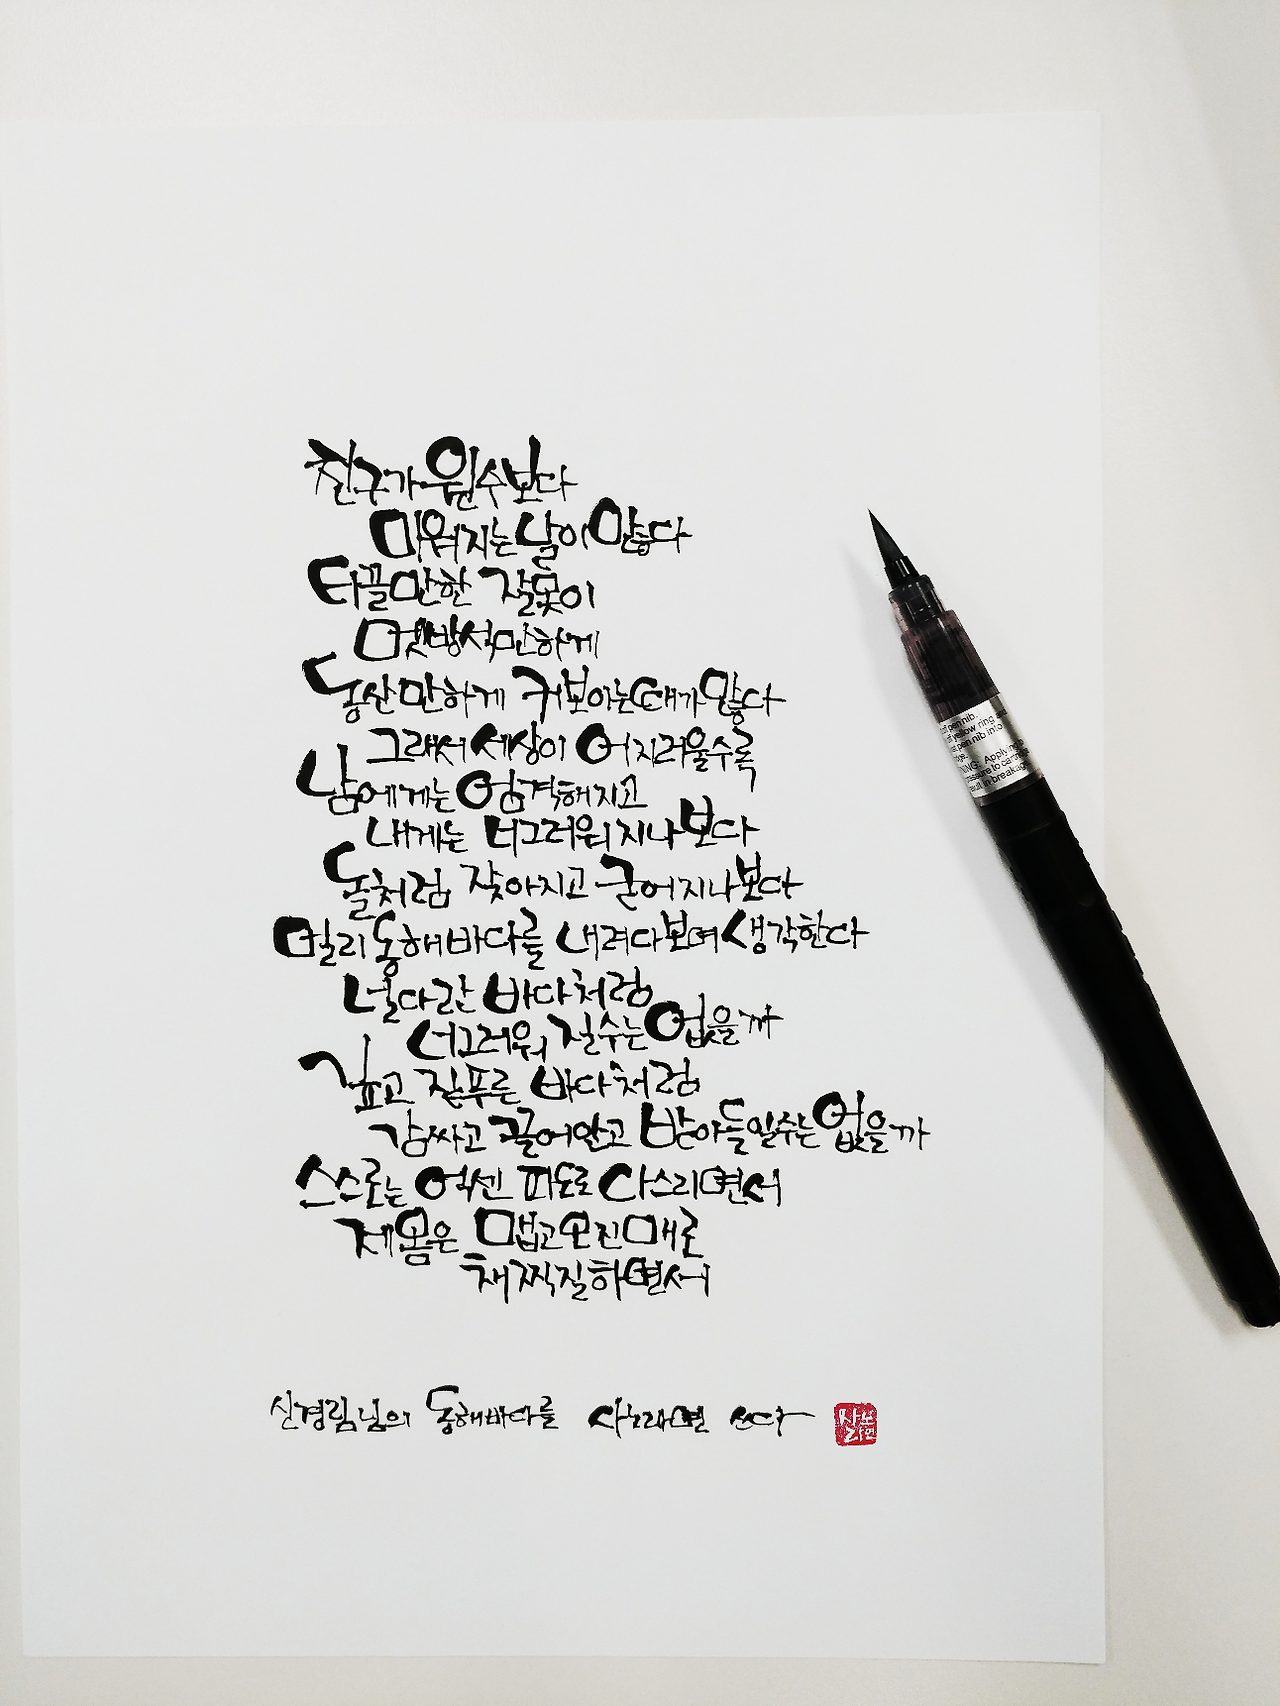 친구가 원수보다
미워지는 날이 많다
티끌만한 잘못이
멧방석만하게
동산만하게 커보이는 때가 많다
그래서 세상이 어지러울수록
남에게는 엄격해지고
내게는 너그러워지나보다
돌처럼 잦아지고 굳어지나보다
멀리 동해바다를 내려다보며 생각한다
널다란 바다처럼
너그러워 질 수는 없을까
깊고 짙푸른 바다처럼
감싸고 끌어안고 받아들일 수는 없을까
스스로는 억센 파도로 다스리면서
제 몸은 맵고 모진 매로
채찍질하면서
신경림님의 동해바다를 사노라면 쓰다
사노라면
of pen nib.
of yellow ring and
pen nib into
NING: Applying
pressure to
result in breakage